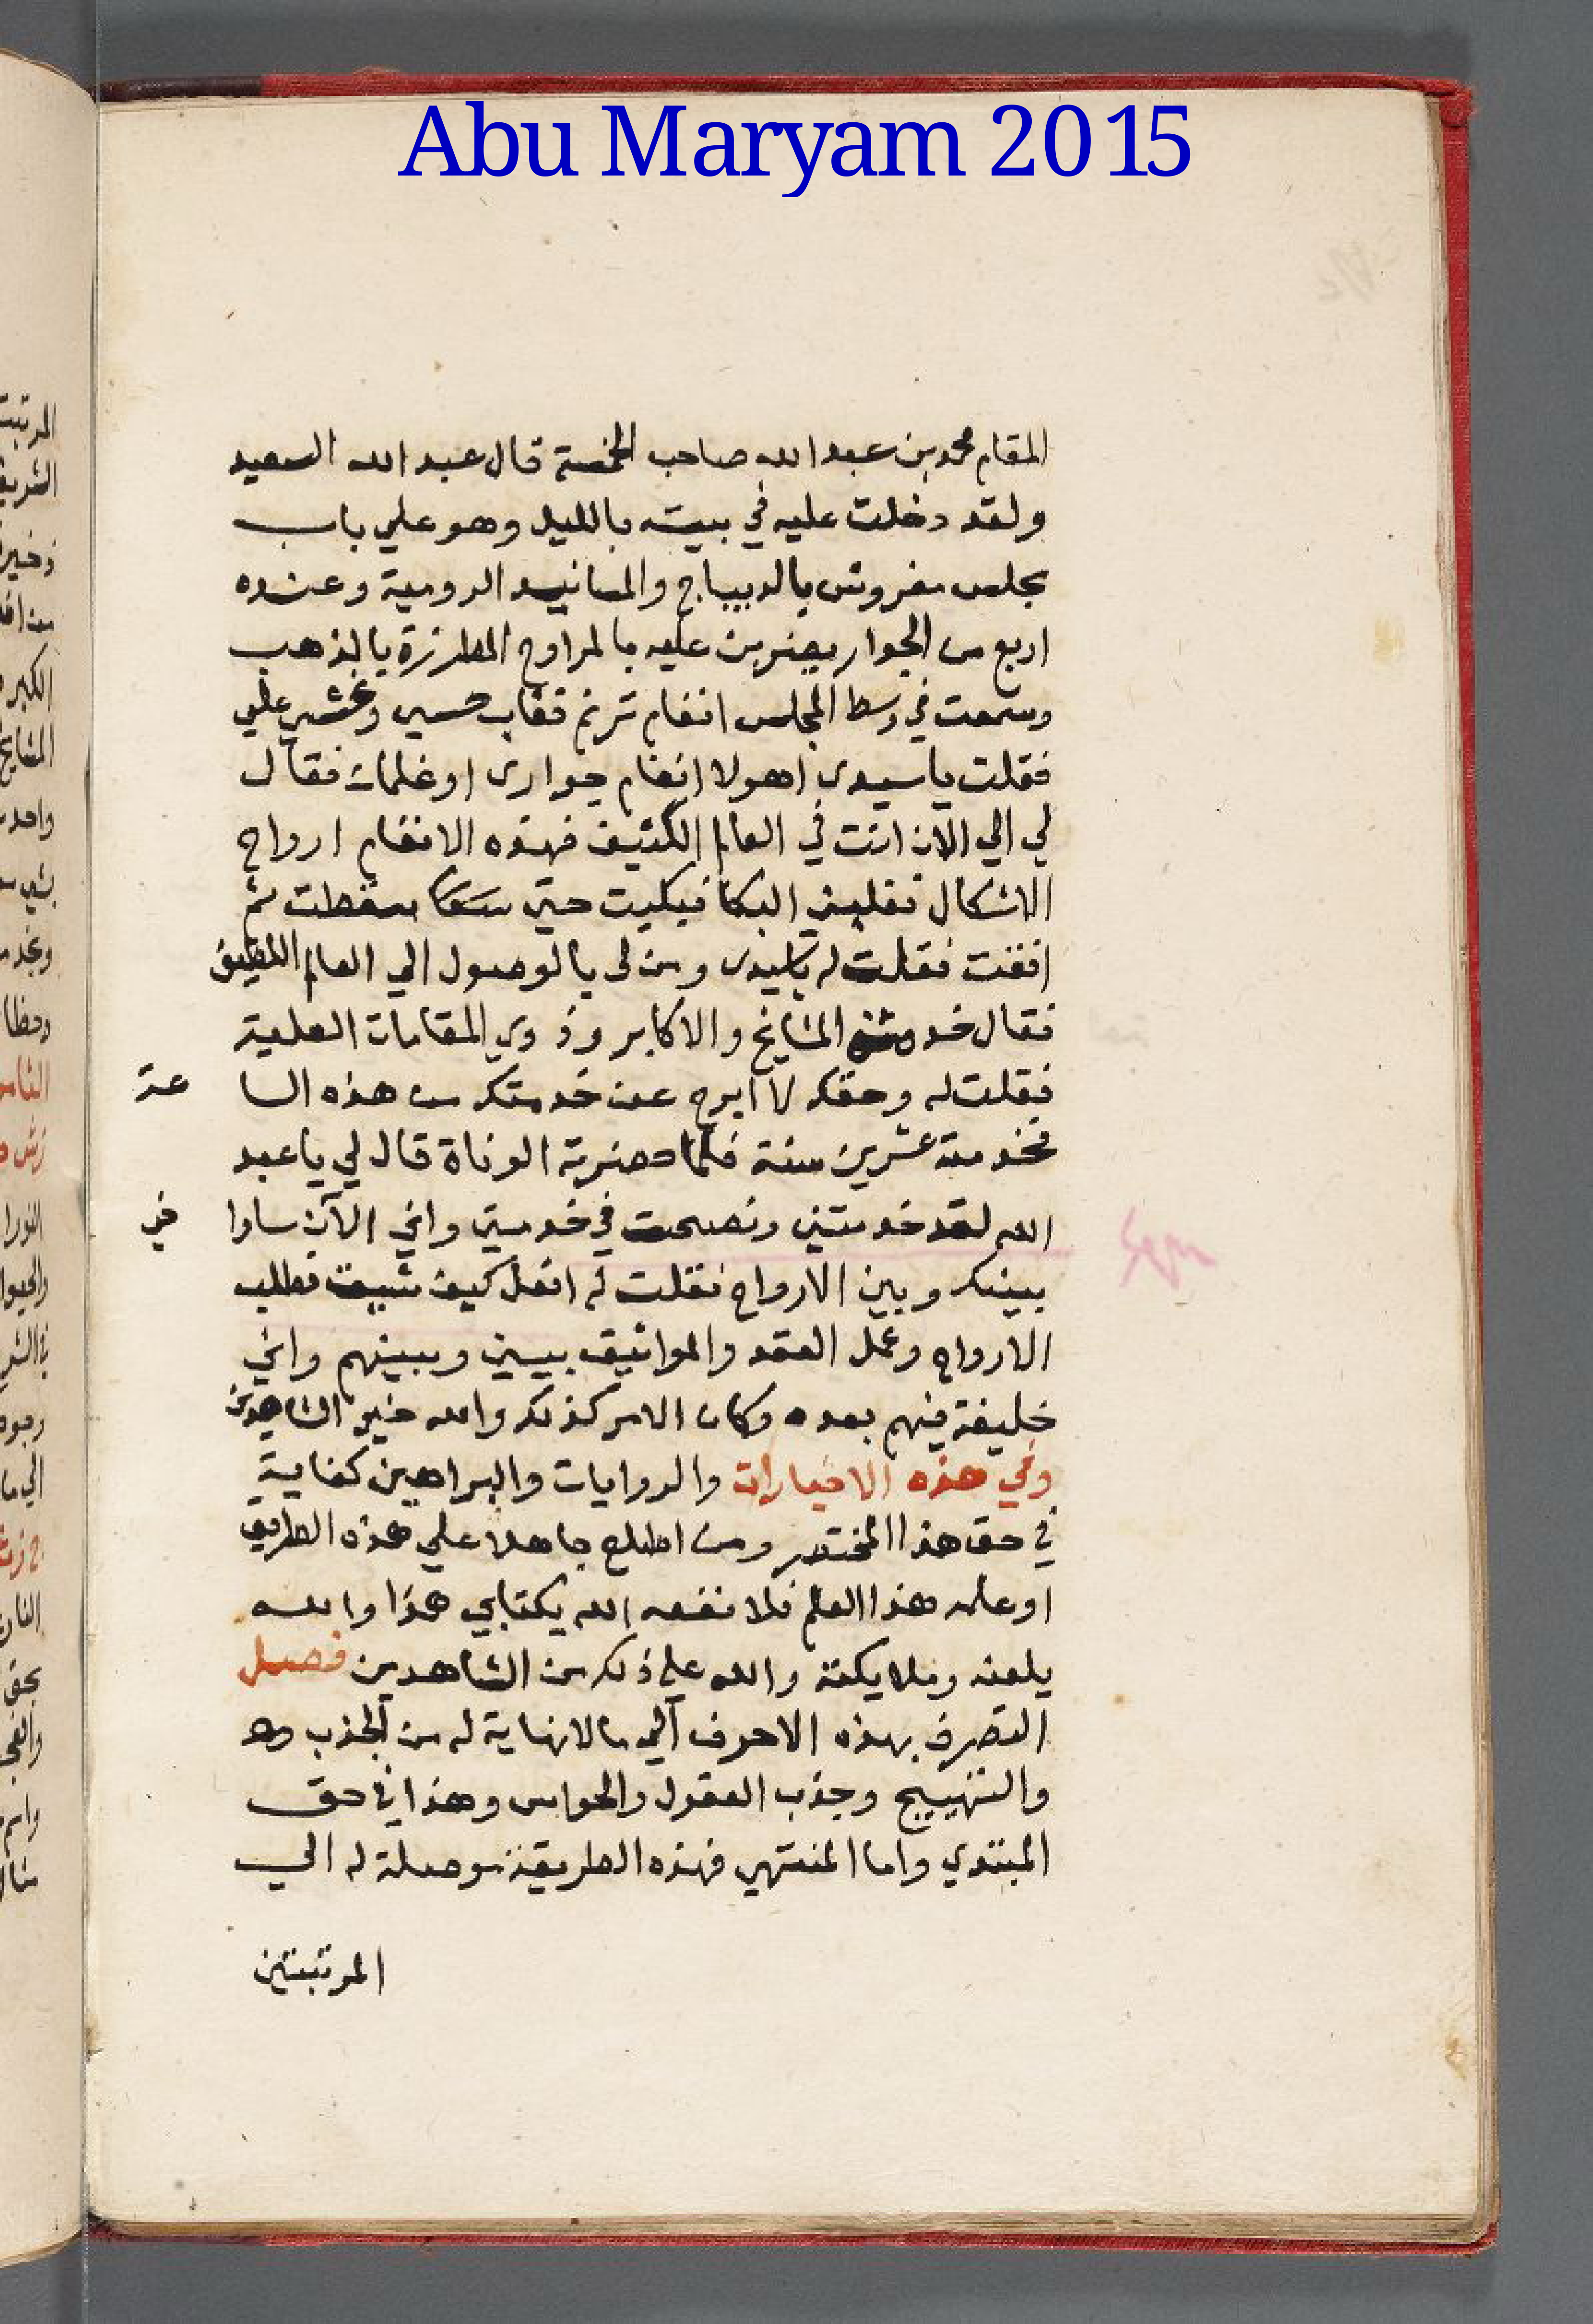 Abu Maryam 2015
المقام محمد بن عبد الله صاحب الخمسة قال عبد الله السعيد
ولقد دخلت عليه في بيته بالليل وهو علي باب
مجلس مفروش بالديباج والمسانيد الرومية وعنده
اربع من الجوار يضربن عليه بالمراوح المطرزة بالذهب
وسمعت في وسط المجلس انغام ترنم
فقلت يا سيدي اهولا انغام جواري او غلمان فقال
لي الي الآن انت في العالم الكثيف فهذه الانغام ارواح
الاشكال فغلبني البكا فبكيت حتى سقطت ثم
افقت فقلت له ياسيدي ومن لى بالوصول الي العالم اللطيف
فقال خدمة المشايخ والاكابر وذوي المقامات العلية
فقلت له وحقك لا ابرح عن خدمتك من هذه السا عة
فخدمته عشرين سنة فلما حضرته الوفاة قال لي يا عبد
الله لقد خدمتني ونصحت في خدمتي واني الآن ساوا خي
بينك وبين الارواح فقلت له افعل كيف شيت فطلب
الارواح وعمل العقد والمواثيق بيني وبينهم واني
خليفة فيهم بعده وكان الامر كذلك والله خير الشاهدين
وفي هذه الاخبارات والروايات والبراهين كفاية
في حق هذا المختصر ومن اطلع جاهلا علي هذه الطريق
او علمه هذا العلم فلا نفعه الله بكتابي هذا والله
يلعنه وملايكته والله على ذلك من الشاهدين فصل
التصرف بهذه الاحرف الي مالانهاية له من الجذب
والتهييج وجذب العقول والحواس وهذا في حق
المبتدي واما المنتهي فهذه الطريقة موصلة له الي
المرتبتين